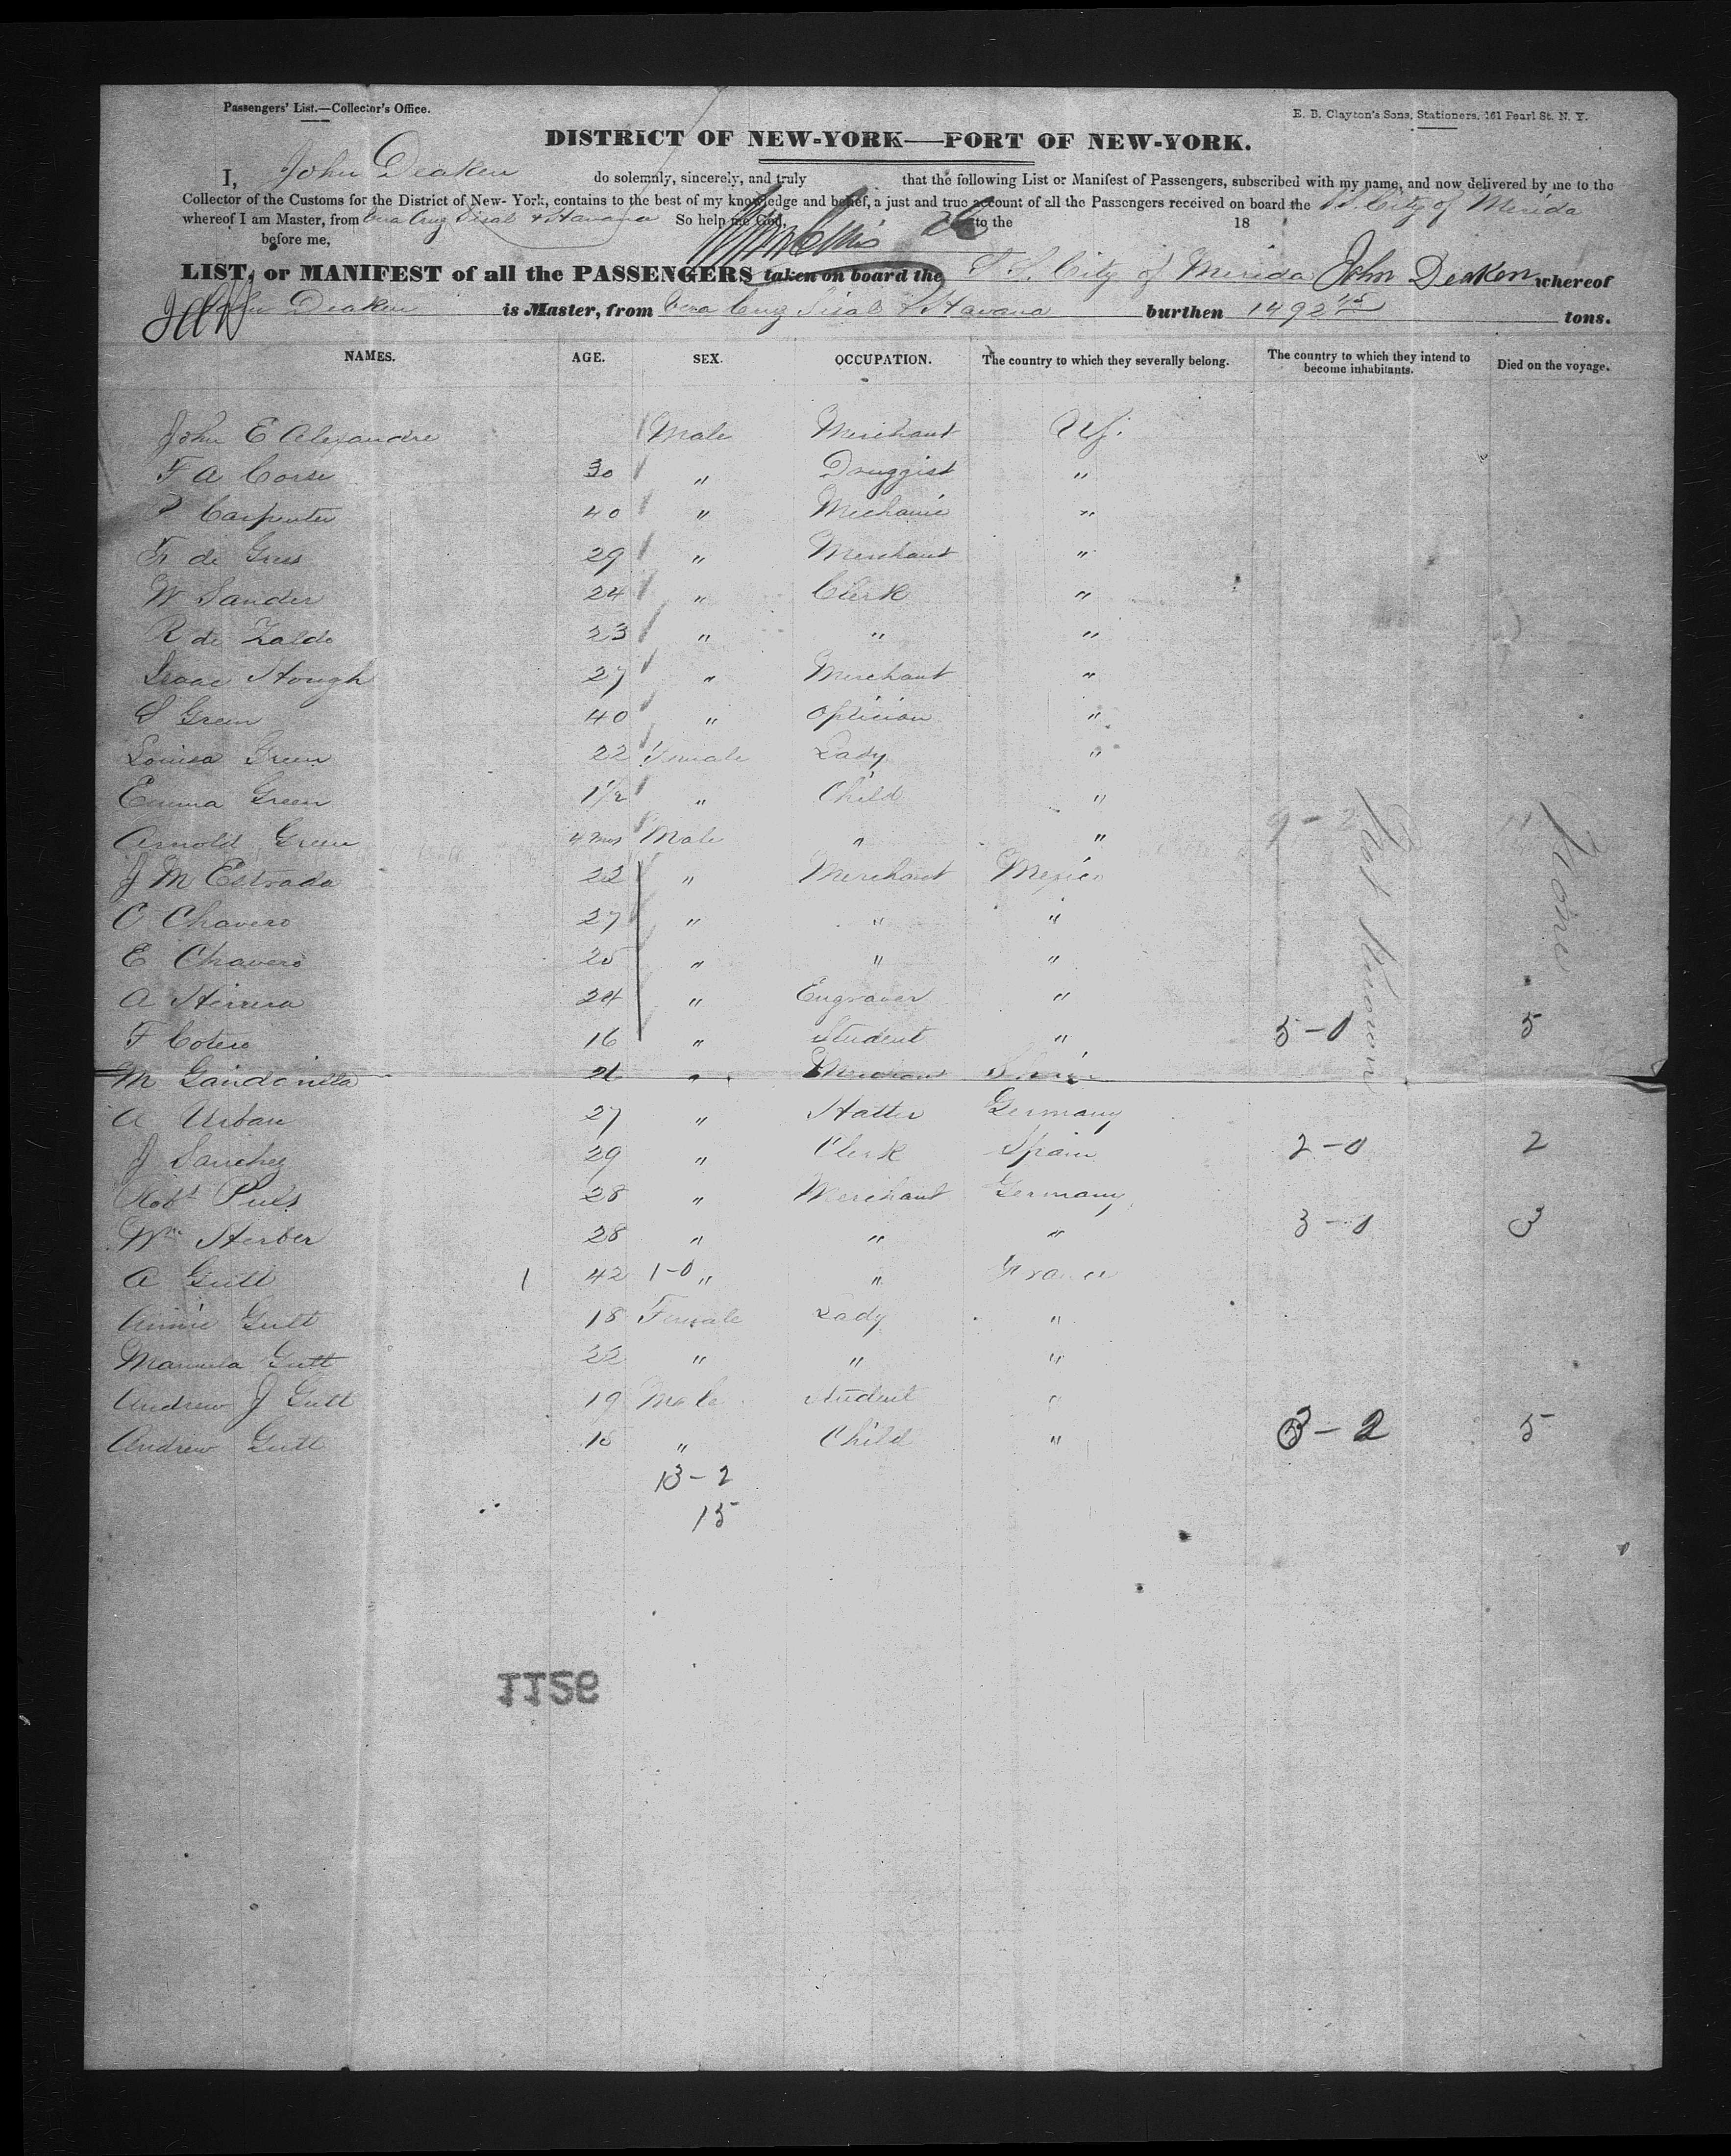 Passengers' List.—Collector's Office.
E. B. Clayton's Sons, Stationers, 161 Pearl St. N. Y.
DISTRICT OF NEW-YORK—PORT OF NEW-YORK.
I, John Deaken do solemnly, sincerely, and truly that the following List or Manifest of Passengers, subscribed with my name, and now delivered by me to the
Collector of the Customs for the District of New-York, contains to the best of my knowledge and belief, a just and true account of all the Passengers received on board the S.S. City of Merida
whereof I am Master, from Vera Cruz Sisal & Havana So help me God. to the 18
before me,
LIST, or MANIFEST of all the PASSENGERS taken on board the S.S. City of Merida John Deaken whereof
John Deaken is Master, from Vera Cruz Sisal & Havana burthen 1492 tons.
NAMES. AGE. SEX. OCCUPATION. The country to which they severally belong. The country to which they intend to become inhabitants. Died on the voyage.
John E Alexandre Male Merchant
F A Corse 30 " Druggist "
P Carpenter 40 " Mechanic "
Fr de Gress 29 " Merchant "
W Sander 24 " Clerk "
R de Zaldo 23 " " "
Isaac Hough 27 " Merchant "
S Green 40 " Optician "
Louisa Green 22 Female Lady "
Emma Green 1 1/2 " Child "
Arnold Green 4 mos Male " " 9-2 11
J M Estrada 22 " Merchant Mexico
C Chavero 27 " " "
E Chavero 25 " " "
A Herrera 24 " Engraver "
F Cotero 16 " Student " 5-0 5
Not Known
None
M 21 " Merchant Spain
A Urban 27 " Hatter Germany
J Sanchez 29 " Clerk Spain 2-0 2
Robt Puls 28 " Merchant Germany
Wm Herber 28 " " " 3-0 3
A Gutt 1 42 1-0 " " France
Annie Gutt 18 Female Lady "
Manuela Gutt 22 " " "
Andrew J Gutt 19 Male Student "
Andrew Gutt 18 " Child " 3-2 5
13-2
15
1156